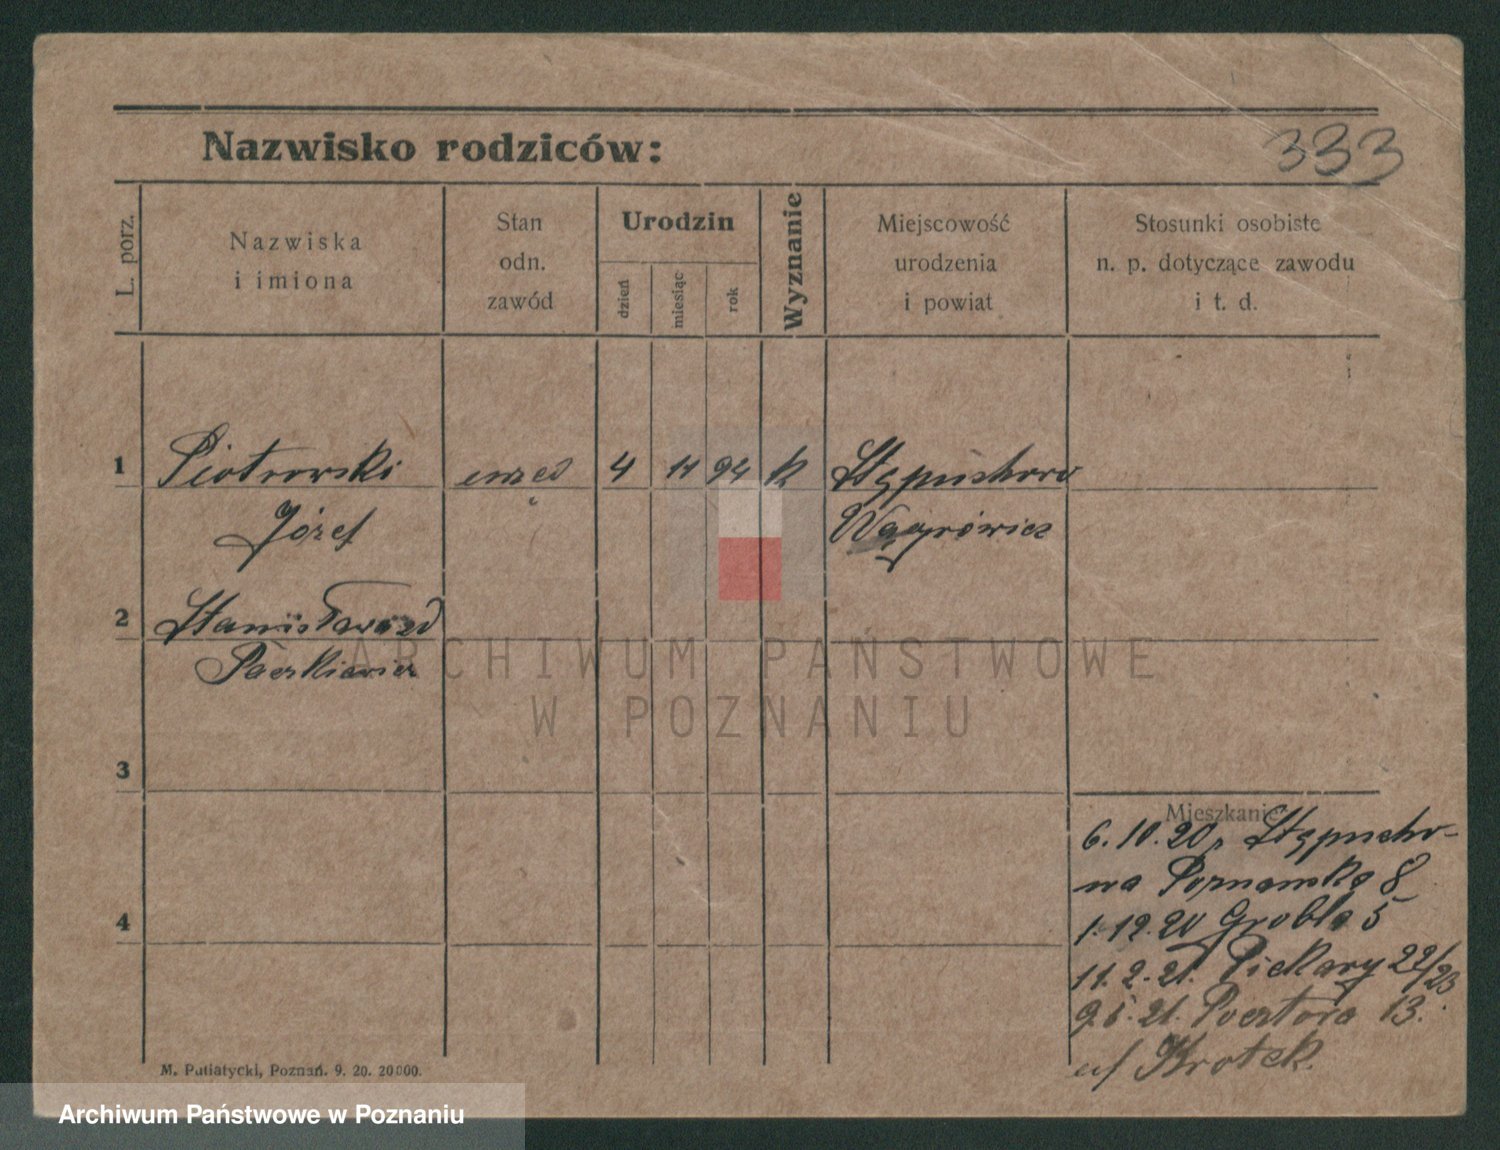 Nazwisko rodziców:
333
L. porz.
Nazwiska
i imiona
Stan
odn.
zawód
Urodzin
dzień
miesiąc
rok
Wyznanie
Miejscowość
urodzenia
i powiat
Stosunki osobiste
n. p. dotyczące zawodu
i t. d.
1 Piotrowski 4 11 94 k
Józef Wągrówiec
2
3
Mieszkanie
6.10.20
Poznańska 8
4
1.12.20 Grobla 5
11.2.21. Piekary 22/23
21. Pocztowa 13.
M. Putiatycki, Poznań. 9. 20. 20000.
ARCHIWUM PAŃSTWOWE
W POZNANIU
Archiwum Państwowe w Poznaniu